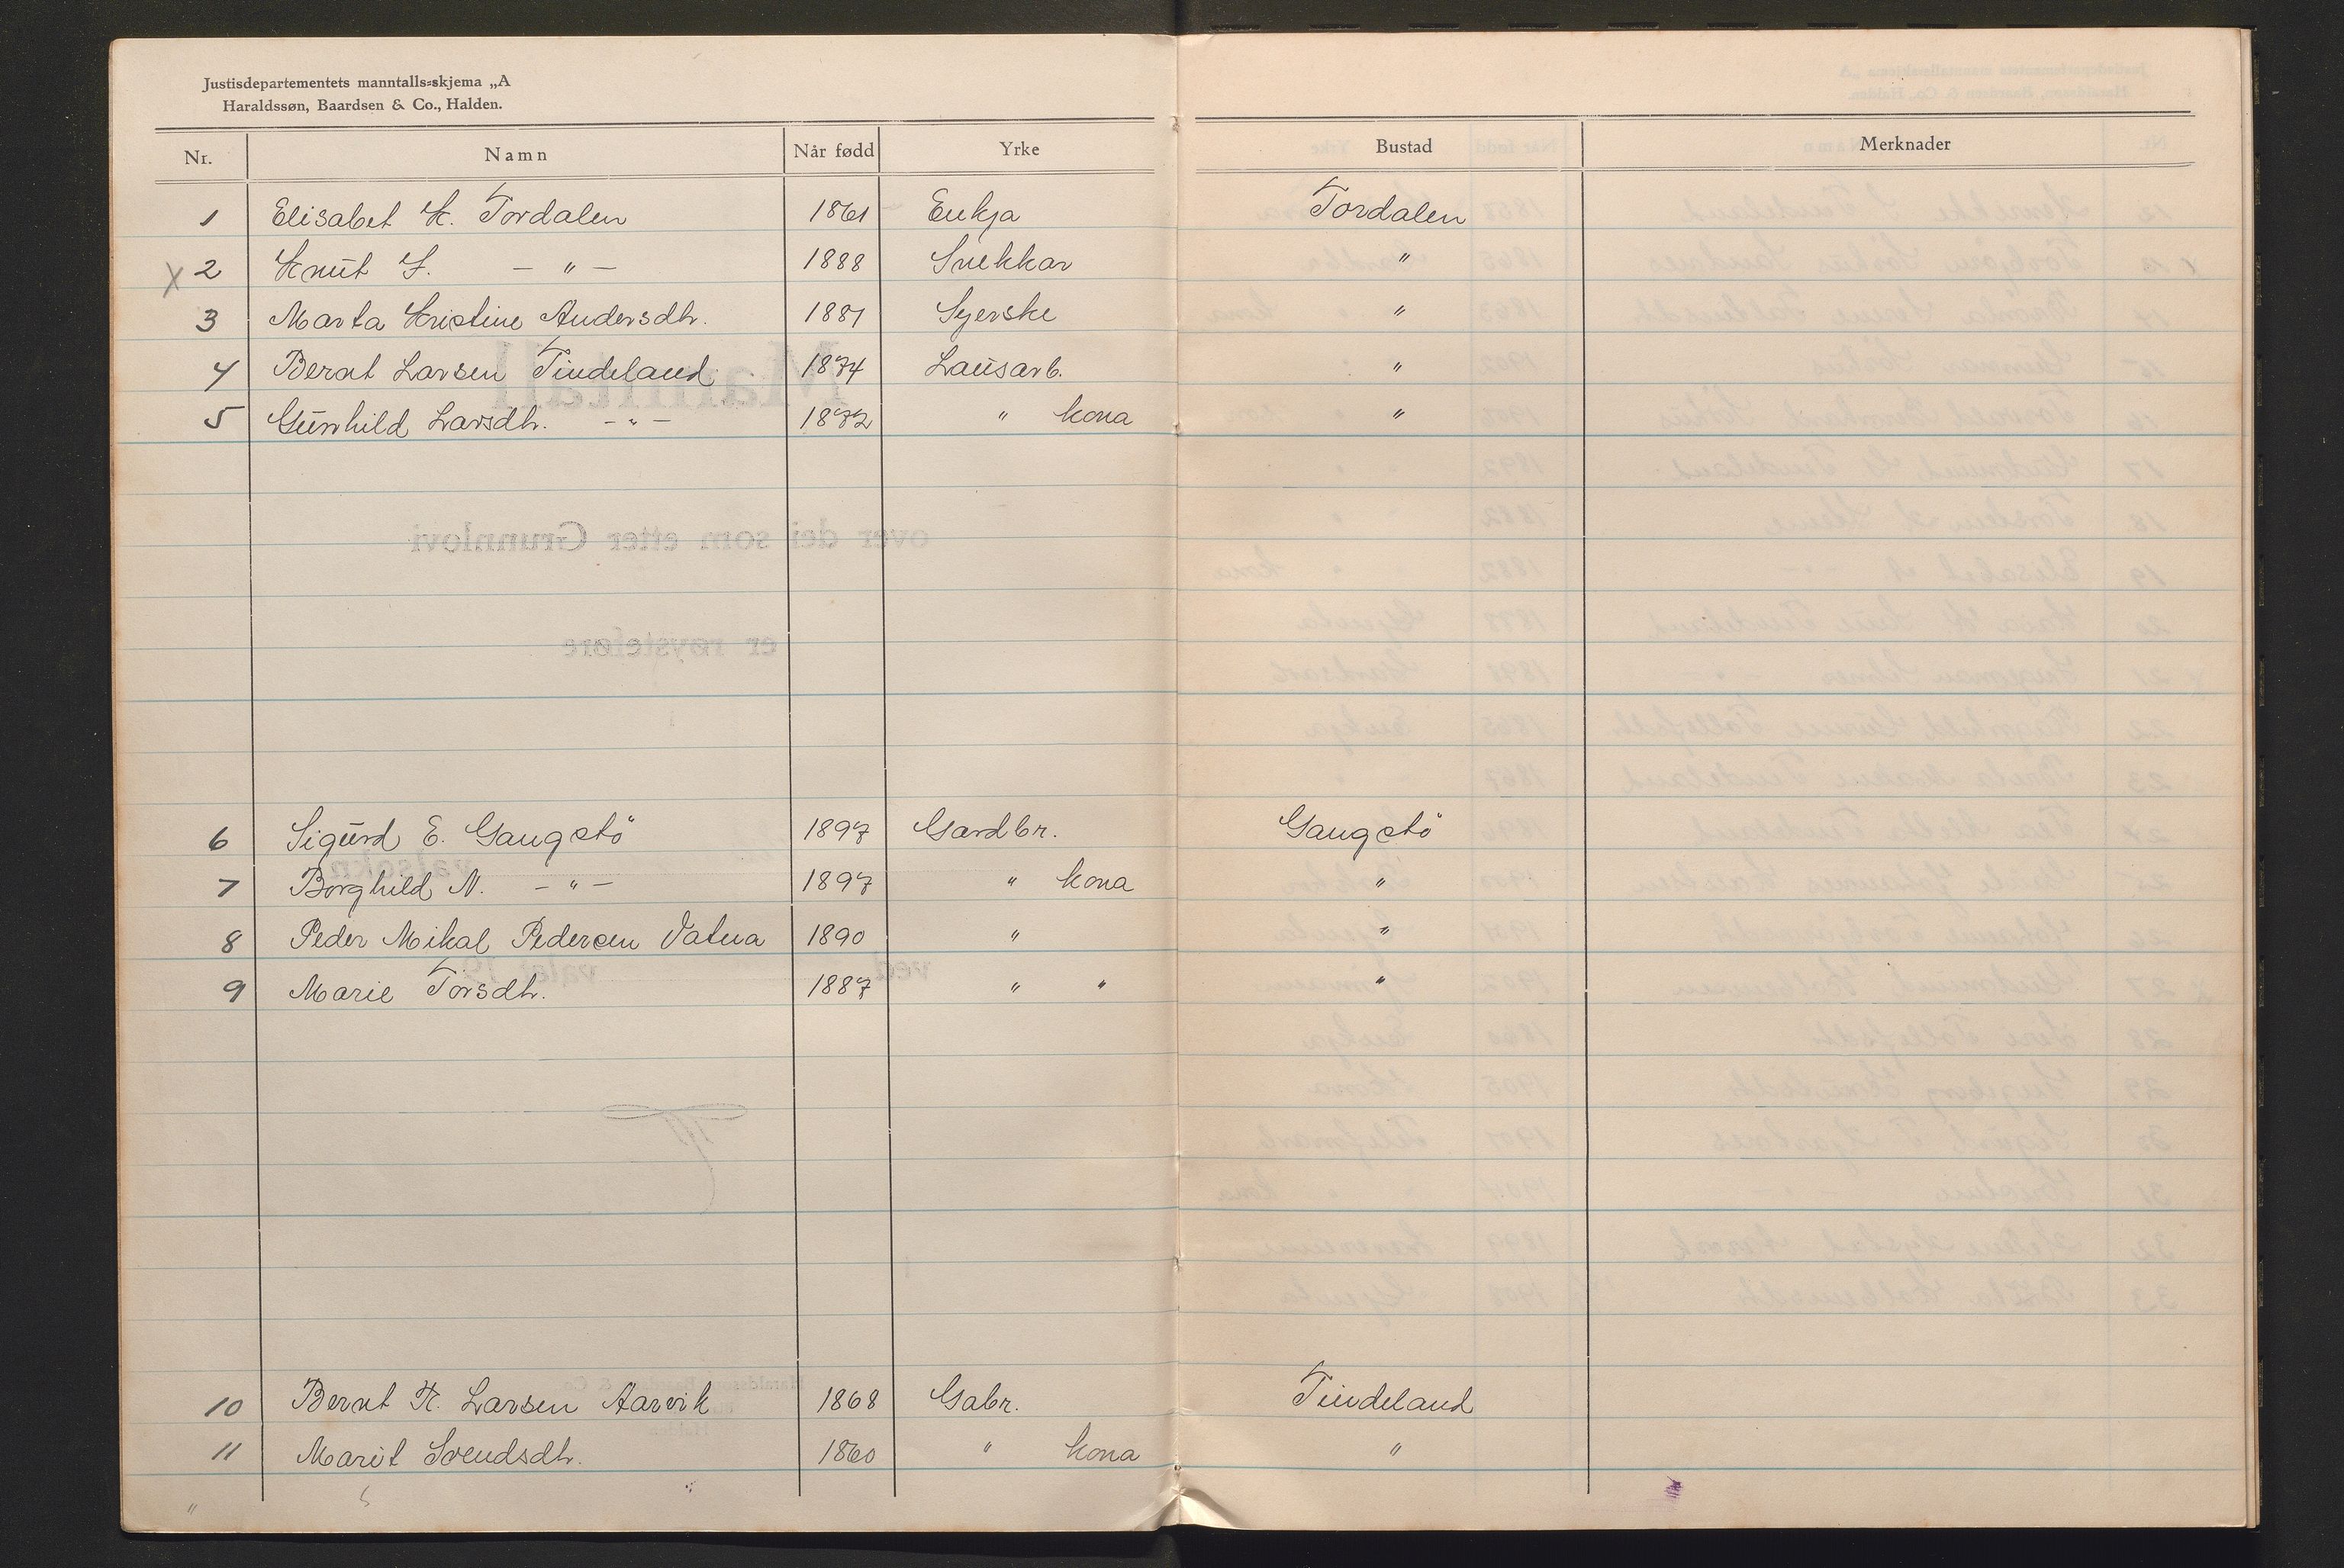 Justisdepartementets manntalls=skjema „A
Haraldssøn, Baardsen & Co., Halden.
Nr. Namn Når fødd Yrke Bustad Merknader
1 Elisabet K. Tordalen 1861 Enkja Tordalen
X 2 Knut S. — " — 1888 Snekkar "
3 Marta Kristine Andersdtr. 1881 Syerske "
4 Bernt Larsen Tindeland 1874 Lausarb. "
5 Gunhild Larsdtr. - " - 1872 " kona "
6 Sigurd E. Gangstö 1897 Gardbr. Gangstö
7 Borghild N. — " — 1897 " kona "
8 Peder Mikal Pedersen Vatna 1890 " "
9 Marie Torsdtr. 1887 " " "
10 Bernt K. Larsen Aarvik 1868 Gabr. Tindeland
11 Marit Svendsdtr. 1860 " kona "